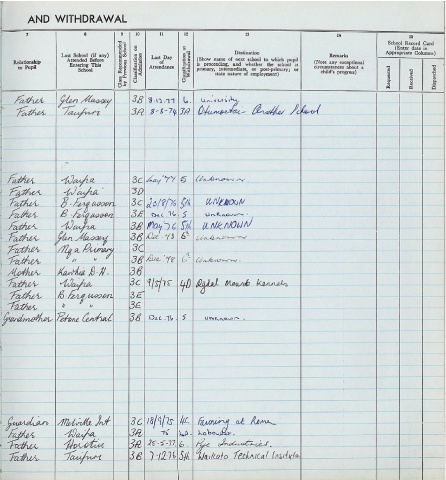 AND WITHDRAWAL
7 8 9 10 11 12 13 14 15
Relationship to Pupil
Last School (if any) Attended Before Entering This School
Class Recommended by Previous School
Classification on Admission
Last Day of Attendance
Classification at Withdrawal
Destination
(Show name of next school to which pupil is proceeding, and whether the school is primary, intermediate, or post-primary; or state nature of employment)
Remarks
(Note any exceptional circumstances about a child's progress)
School Record Card
(Enter date in Appropriate Column)
Requested
Received
Deposited
Father Glen Massey 3B 8-12-77 6. university
Father Taupiri 3A 8-5-74 3A Another School
Father Waipa 3C 77 5 Unknown
Father Waipa 3D
Father B. Fergusson 3C 20/8/75 5th UNKNOWN
Father B. Fergusson 3E Dec. 76 5 unknown.
Father Waipa 3B May 76 5th UNKNOWN
Father Glen Massey 3B Dec unknown
Father Nga Primary 3C
Father " " 3B Dec unknown.
Mother Rawhia D.H. 3B
Father Waipa 3C 9/5/75 4D Kennels
Father B. Fergusson 3E
Father " 3E
Grandmother Petone Central 3B Dec 76 5 unknown.
Guardian Melville Int 3C 18/9/75 4C Farming at Home
Father Waipa 3A 75 Labourer.
Father Horotiu 3A 25-5-77 6 Rye Industries.
Father Taupiri 3B 7-12-76 5A Waikato Technical Institute